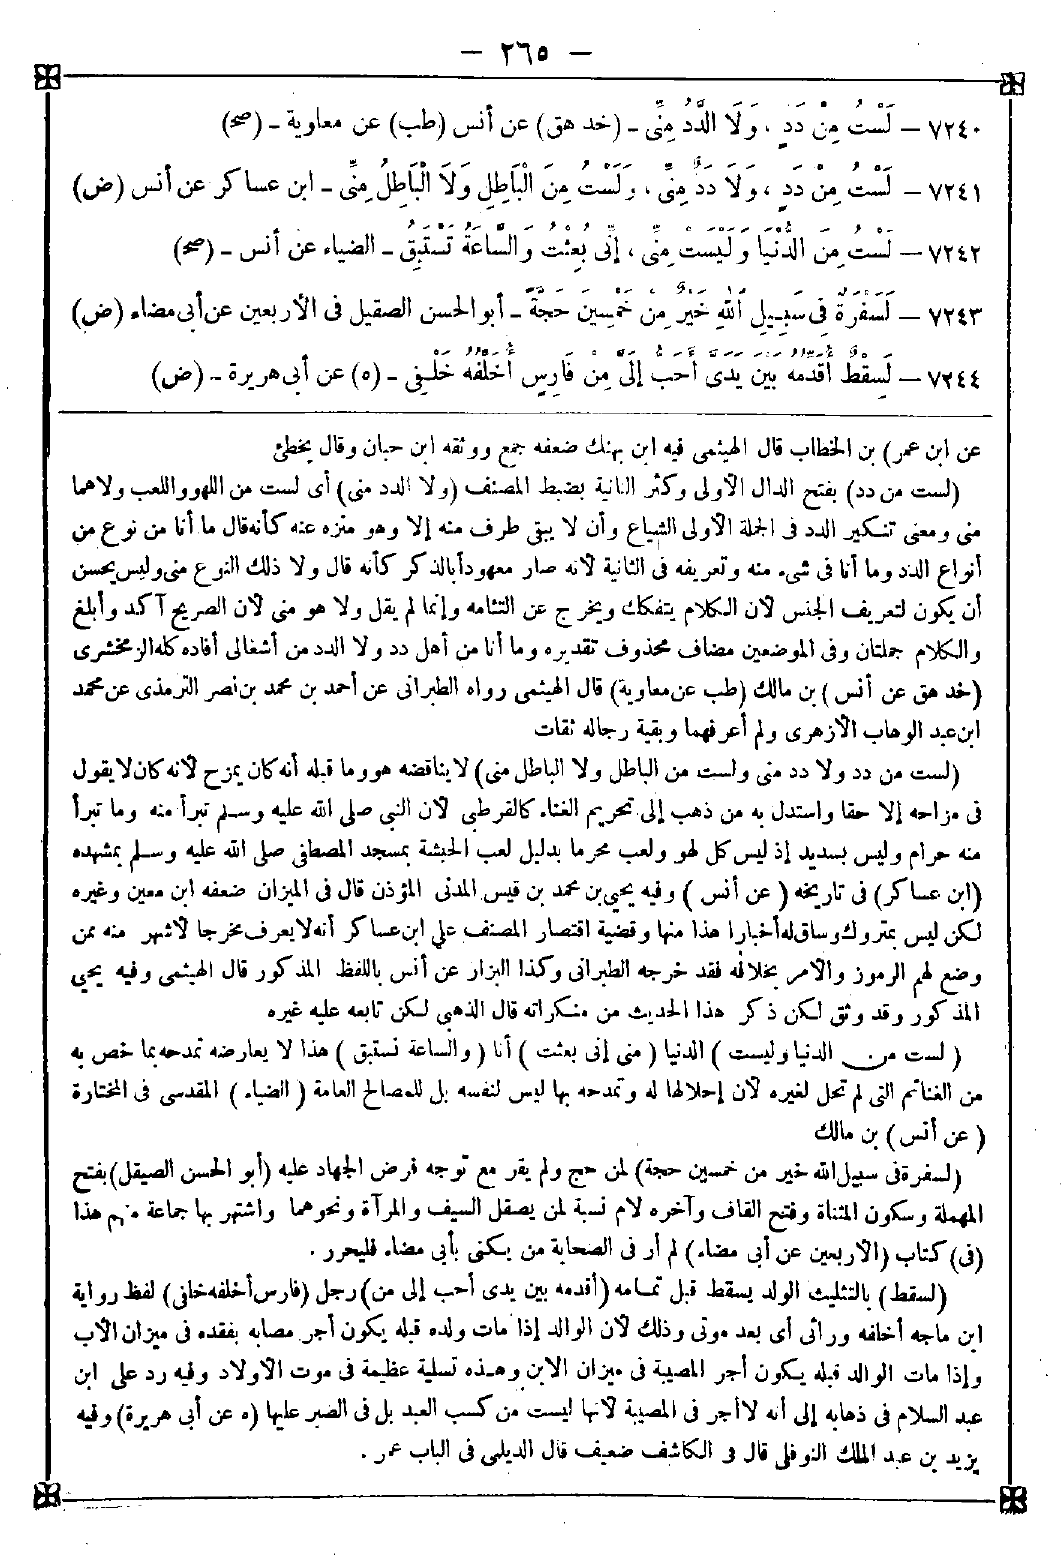 — ٢٦٥ —
٧٢٤٠ — لَسْتُ مِنْ دَدٍ ، وَلَا الدَّدُ مِنِّي - (خد هق) عن أنس (طب) عن معاوية - (صح)
٧٢٤١ — لَسْتُ مِنْ دَدٍ ، وَلَا دَدٌ مِنِّي ، وَلَسْتُ مِنَ الْبَاطِلِ وَلَا الْبَاطِلُ مِنِّي - ابن عساكر عن أنس (ض)
٧٢٤٢ — لَسْتُ مِنَ الدُّنْيَا وَلَيْسَتْ مِنِّي ، إِنِّي بُعِثْتُ وَالسَّاعَةُ نَسْتَبِقُ - الضياء عن أنس - (صح)
٧٢٤٣ — لَسَفْرَةٌ فِي سَبِيلِ اللهِ خَيْرٌ مِنْ خَمْسِينَ حَجَّةً - أبو الحسن الصقيل فى الأربعين عن أبى مضاء (ض)
٧٢٤٤ — لَسِقْطٌ أُقَدِّمُهُ بَيْنَ يَدَىَّ أَحَبُّ إِلَىَّ مِنْ فَارِسٍ أُخَلِّفُهُ خَلْفِي - (ه) عن أبى هريرة - (ض)
عن ابن عمر) بن الخطاب قال الهيثمى فيه ابن بهنك ضعفه جمع ووثقه ابن حبان وقال يخطئ
(لست من دد) بفتح الدال الأولى وكسر الثانية بضبط المصنف (ولا الدد منى) أى لست من اللهو واللعب ولاهما
منى ومعنى تنكير الدد فى الجملة الأولى الشياع وأن لا يبقى طرف منه إلا وهو منزه عنه كأنه قال ما أنا من نوع من
أنواع الدد وما أنا فى شىء منه وتعريفه فى الثانية لأنه صار معهوداً بالذكر كأنه قال ولا ذلك النوع منى وليس يحسن
أن يكون لتعريف الجنس لأن الكلام يتفكك ويخرج عن التئامه وإنما لم يقل ولا هو منى لأن الصريح آكد وأبلغ
والكلام جملتان وفى الموضعين مضاف محذوف تقديره وما أنا من أهل دد ولا الدد من أشغالى أفاده كله الزمخشرى
(خد هق عن أنس) بن مالك (طب عن معاوية) قال الهيثمى رواه الطبرانى عن أحمد بن محمد بن نصر الترمذى عن محمد
ابن عبد الوهاب الأزهرى ولم أعرفهما وبقية رجاله ثقات
(لست من دد ولا دد منى ولست من الباطل ولا الباطل منى) لا يناقضه هو وما قبله أنه كان يمزح لأنه كان لا يقول
فى مزاحه إلا حقا واستدل به من ذهب إلى تحريم الغناء كالقرطبى لأن النبى صلى الله عليه وسلم تبرأ منه وما تبرأ
منه حرام وليس بسديد إذ ليس كل لهو ولعب محرما بدليل لعب الحبشة بمسجد المصطفى صلى الله عليه وسلم بمشهده
(ابن عساكر) فى تاريخه (عن أنس) وفيه يحيى بن محمد بن قيس المدنى المؤذن قال فى الميزان ضعفه ابن معين وغيره
لكن ليس بمتروك وساق له أخبارا هذا منها وقضية اقتصار المصنف على ابن عساكر أنه لا يعرف مخرجا لأشهر منه ممن
وضع لهم الرموز والأمر بخلافه فقد خرجه الطبرانى وكذا البزار عن أنس باللفظ المذكور قال الهيثمى وفيه يحيى
المذكور وقد وثق لكن ذكر هذا الحديث من منكراته قال الذهبى لكن تابعه عليه غيره
(لست من الدنيا وليست) الدنيا (منى إنى بعثت) أنا (والساعة نستبق) هذا لا يعارضه تمدحه بما خص به
من الغنائم التى لم تحل لغيره لأن إحلالها له وتمدحه بها ليس لنفسه بل للمصالح العامة (الضياء) المقدسى فى المختارة
(عن أنس) بن مالك
(لسفرة فى سبيل الله خير من خمسين حجة) لمن حج ولم يقر مع توجه فرض الجهاد عليه (أبو الحسن الصيقل) بفتح
المهملة وسكون المثناة وفتح القاف وآخره لام نسبة لمن يصقل السيف والمرآة ونحوهما واشتهر بها جماعة منهم هذا
(فى) كتاب (الأربعين عن أبى مضاء) لم أر فى الصحابة من يكنى بأبى مضاء فليحرر .
(لسقط) بالتثليث الولد يسقط قبل تمامه (أقدمه بين يدى أحب إلى من) رجل (فارس أخلفه خلفى) لفظ رواية
ابن ماجه أخلفه ورائى أى بعد موتى وذلك لأن الوالد إذا مات ولده قبله يكون أجر مصابه بفقده فى ميزان الأب
وإذا مات الوالد قبله يكون أجر المصيبة فى ميزان الابن وهذه تسلية عظيمة فى موت الأولاد وفيه رد على ابن
عبد السلام فى ذهابه إلى أنه لا أجر فى المصيبة لأنها ليست من كسب العبد بل فى الصبر عليها (ه عن أبى هريرة) وفيه
يزيد بن عبد الملك النوفلى قال فى الكاشف ضعيف قال الديلمى فى الباب عمر .